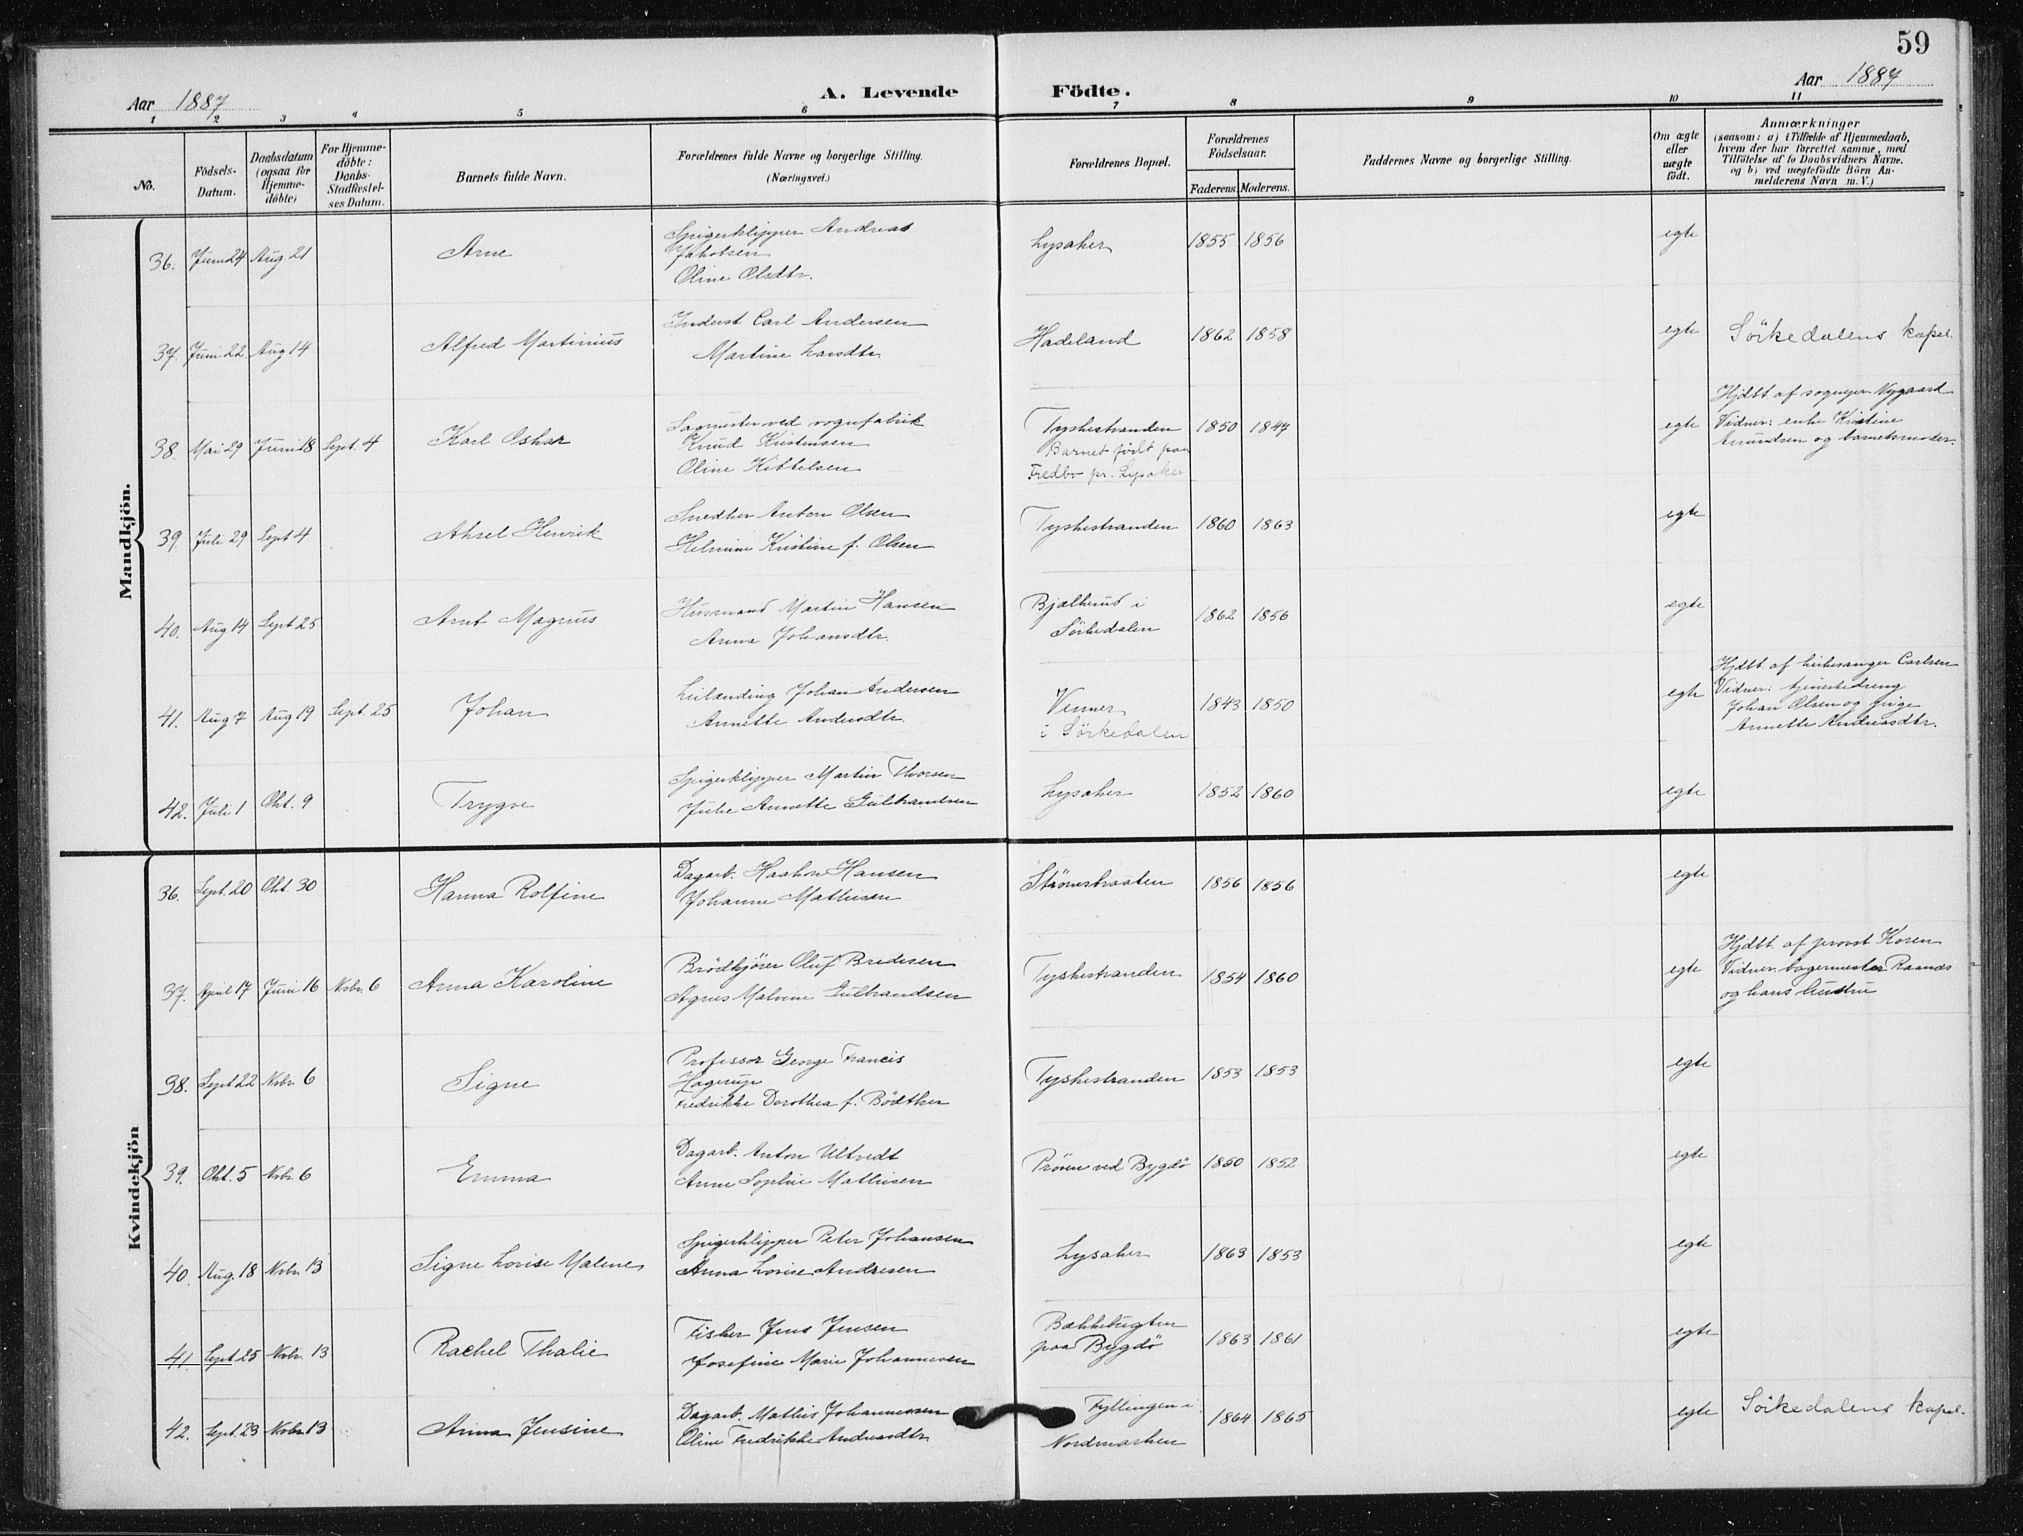 59
Aar 1887 A. Levende Födte. Aar 1887
1 2 3 4 5 6 7 8 9 10 11
No. Födsels-Datum. Daabsdatum (ogsaa for Hjemme-döbte) For Hjemme-döbte: Daabs-Stadfæstel-ses Datum. Barnets fulde Navn. Forældrenes fulde Navne og borgerlige Stilling. (Næringsvei.) Forældrenes Bopæl. Forældrenes Födselsaar. Faderens. Moderens. Faddernes Navne og borgerlige Stilling. Om ægte eller uægte födt. Anmærkninger (saasom: a) i Tilfælde af Hjemmedaab, hvem der har forrettet samme, med Tilföielse af to Daabsvidners Navne. og b) ved uægtefödte Börn An-melderens Navn m. V.)
Mandkjön.
36. Juni 24 Aug 21 Arne Spigerklipper Andreas Jakobsen Oline Olsdtr. Lysaker 1855 1856 egte
37. Juni 22 Aug 14 Alfred Martinius Inderst Carl Andersen Martine Larsdtr. Hadeland 1862 1858 egte Sörkedalens kapel.
38. Mai 29 Juni 18 Sept. 4 Karl Oskar ved vognfabrik Knud Kristensen Oline Kittelsen Tyskestranden Barnet födt paa Fredbo pr. Lysaker 1850 1847 egte Hjdbt af sognepr. Nygaard Vidner: enke Kristine Amundsen og barnets moder.
39. Juli 29 Sept 4 Aksel Henrik Snedker Anton Olsen Helmine Kristine f. Olsen Tyskestranden 1860 1863 egte
40. Aug 14 Sept 25 Arnt Magnus Husmand Martin Hansen Anna Johansdtr. Bjælkerud i Sörkedalen 1862 1856 egte
41. Aug 7 Aug 19 Sept. 25 Johan Leilænding Johan Andersen Annette Andersdtr. Venner i Sörkedalen 1843 1850 egte Hjdbt af kirkesanger Carlsen Vidner: tjenestedreng Johan Olsen og pige Annette Andreasdtr.
42. Juli 1 Okt. 9 Trygve Spigerklipper Martin Thorsen Julie Annette Gulbrandsen Lysaker 1852 1860 egte
Kvindekjön
36. Sept. 20 Okt. 30 Hanna Rolfine Dagarb. Haakon Hansen Johanne Mathisen Strömsbraaten 1856 1856 egte
37. April 17 Juni 16 Novbr. 6 Anna Karoline Brödkjörer Oluf Bredesen Agnes Malvine Gulbrandsen Tyskestranden 1854 1860 egte Hjdbt. af provst Koren Vidner: bagermester Raanæs og hans hustru
38. Sept 22 Novbr 6 Signe Professor George Francis Hagerup Fredrikke Dorothea f. Bödtker Tyskestranden 1853 1853 egte
39. Okt. 5 Novbr. 6 Emma Dagarb. Anton Ultvedt Anne Sophie Mathisen Prören ved Bygdö 1850 1852 egte
40. Aug. 18 Novbr. 13 Signe Lovise Malene Spigerklipper Peter Johansen Anna Lovise Andresen Lysaker 1863 1853 egte
41. Sept 25 Novbr. 13 Rachel Thalie Fisker Jens Jensen Josefine Marie Johannesen Bækkebugten paa Bygdö 1863 1861 egte
42. Sept. 23 Novbr. 13 Anna Jensine Dagarb. Mathis Johannessen Oline Fredrikke Andreasdtr. Fyllingen i Nordmarken 1864 1865 egte Sörkedalens kapel.